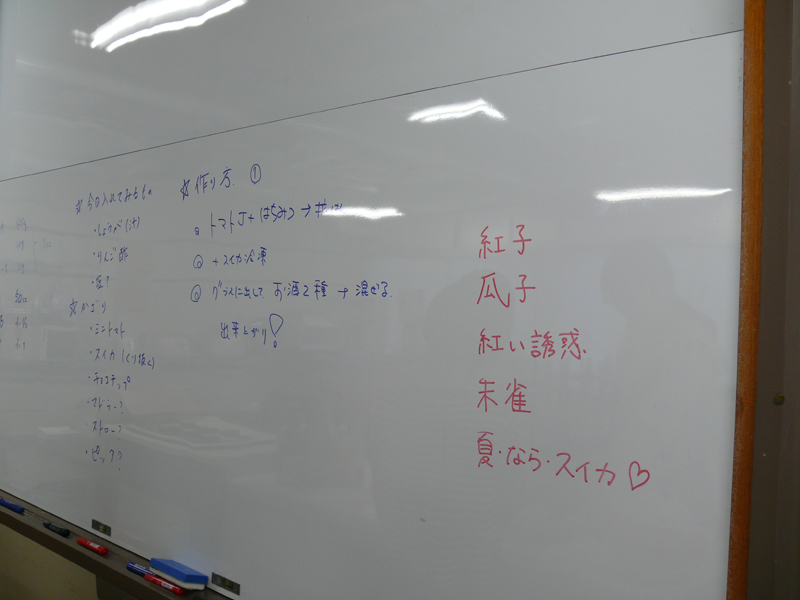 ☆今日入れてみるもの
・しょうが(汁)
・りんご酢
・塩?
☆かざり
・ミニトマト
・スイカ(くり抜く)
・チョコチップ
・マドラー?
・ストロー?
・ピック?
☆作り方 ①
トマトJ+はちみつ→
+スイカ冷凍
グラスに出して、お酒2種→混ぜる
出来上がり!
紅子
瓜子
紅い誘惑
朱雀
夏・なら・スイカ♡